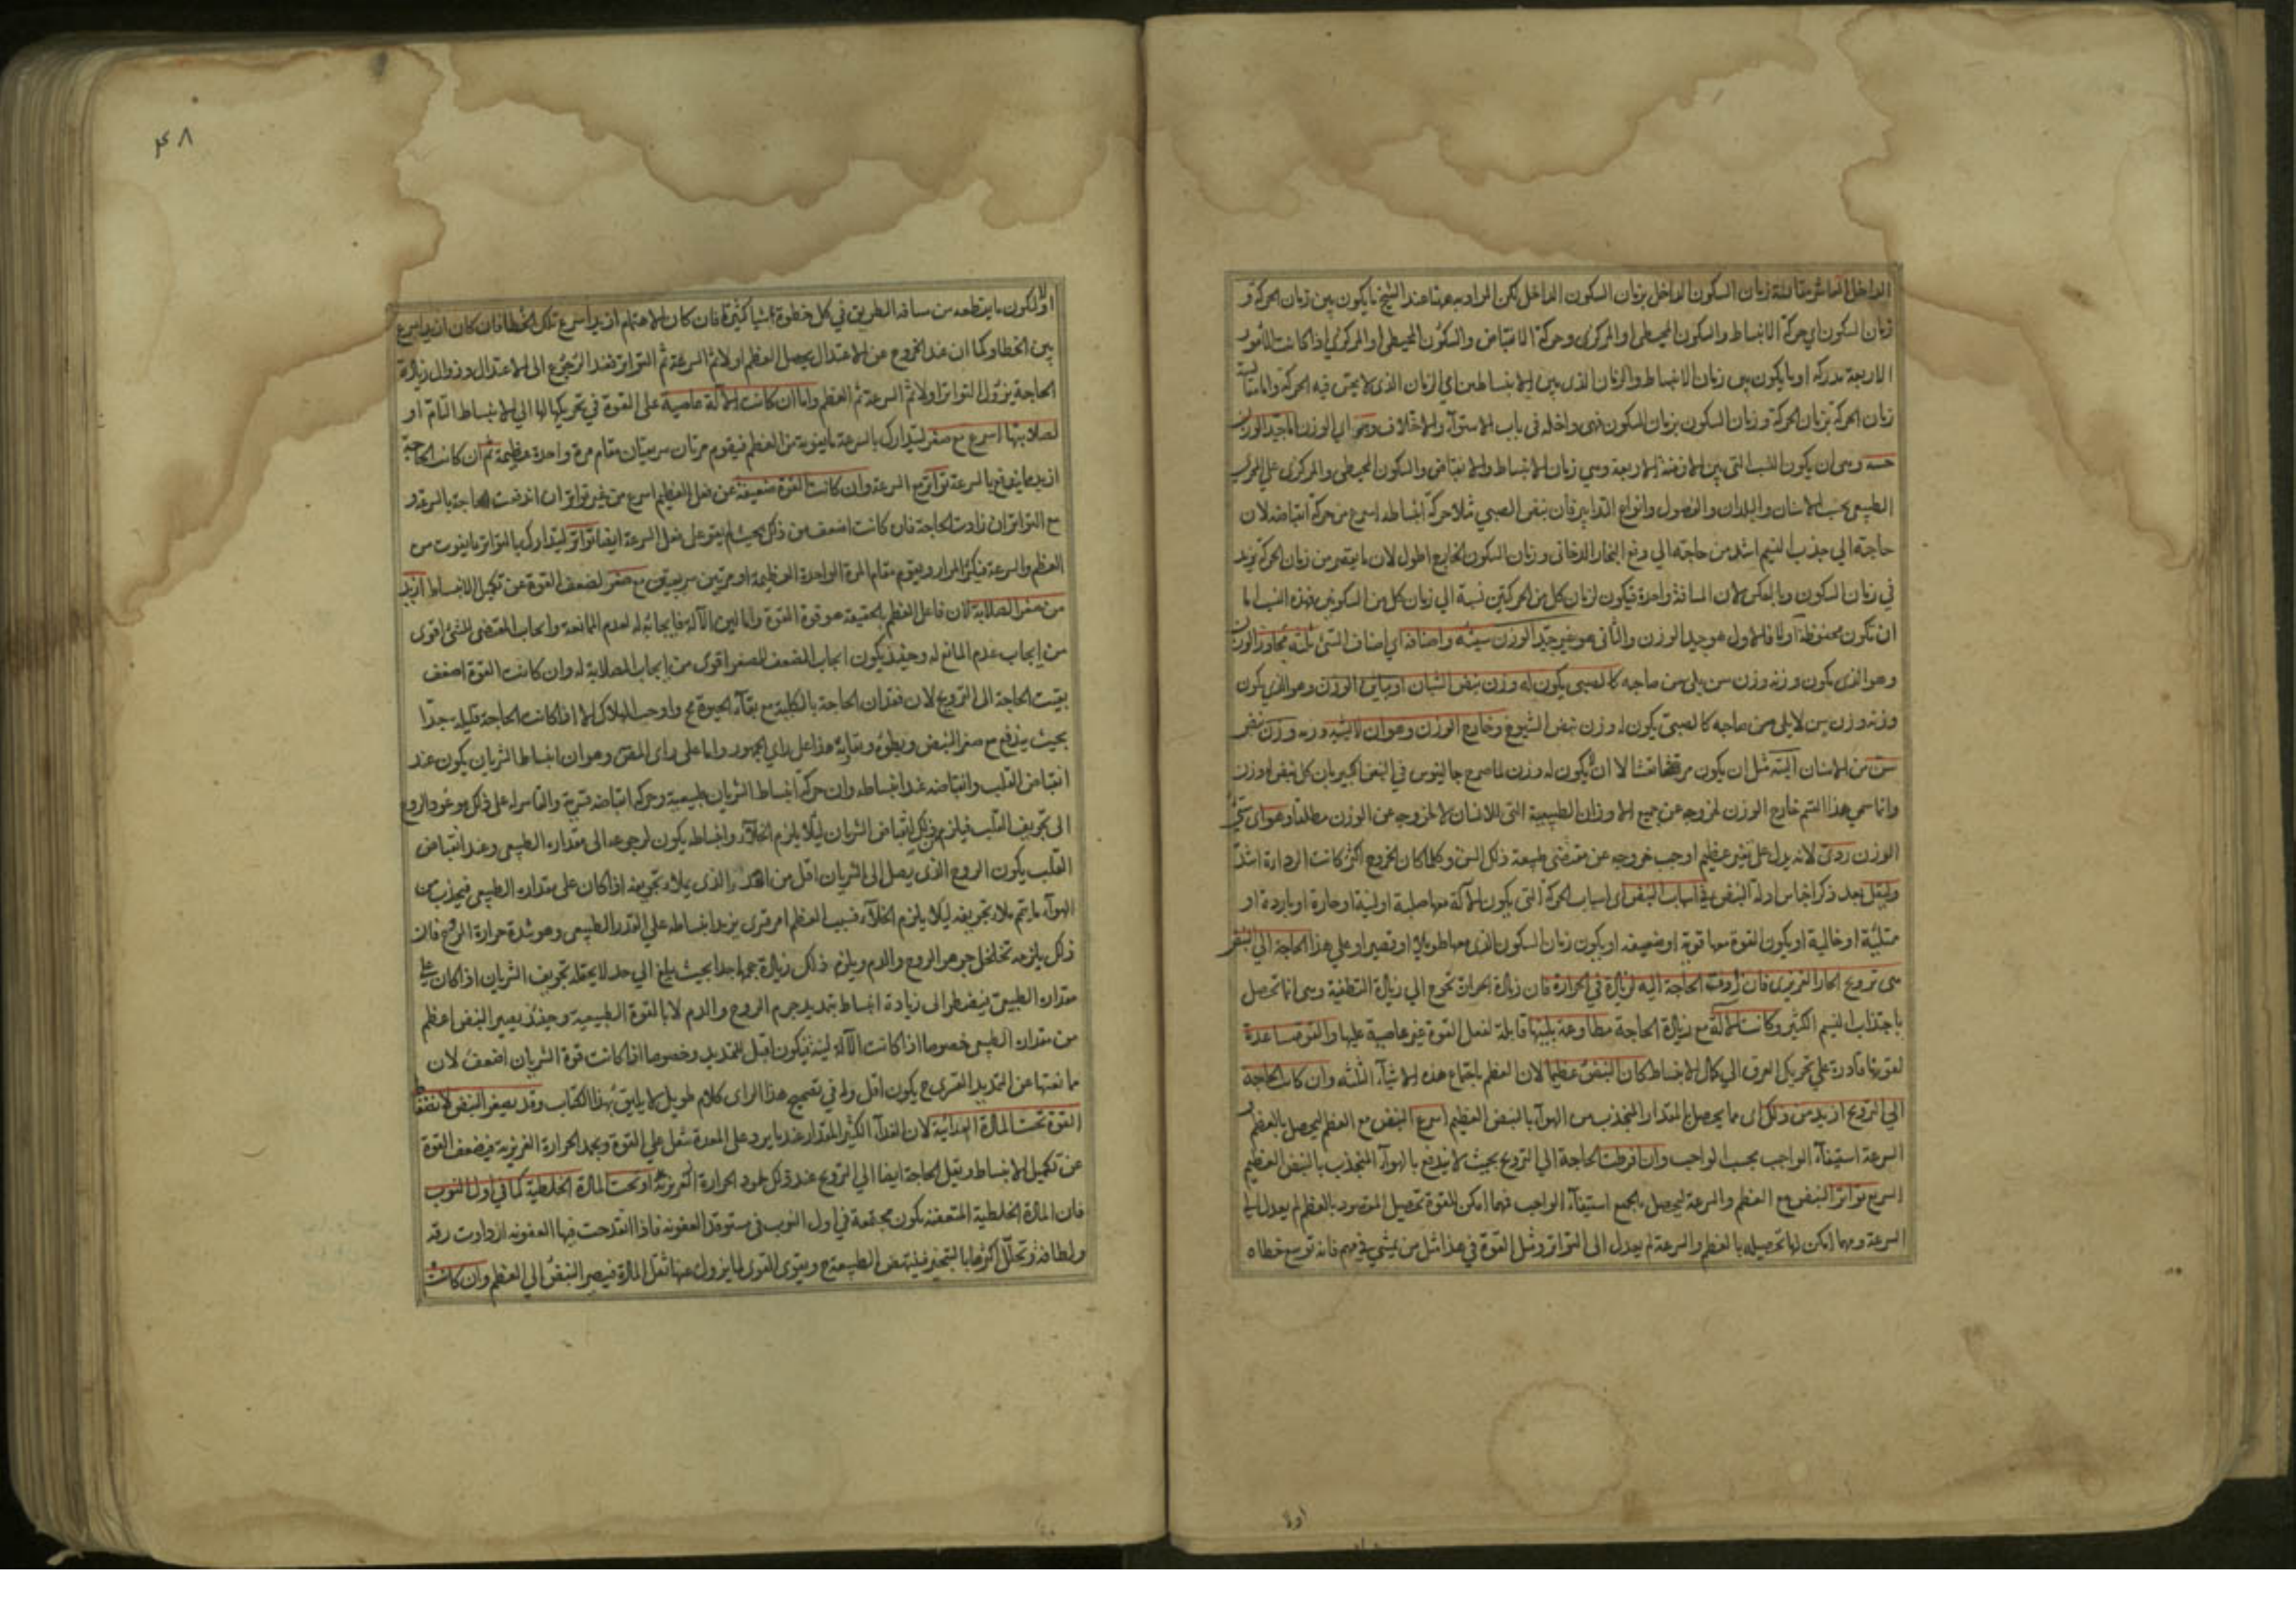 الداخل العاشر مقايسة زمان السكون الداخل بزمان السكون الداخل لكن المراد به هنا عند الشيخ ما يكون بين زمان الحركة و
زمان السكون اي حركة الانبساط والسكون المحيطي او المركزي وحركة الانقباض والسكون المحيطي او المركزي اذا كانت الامور
الاربعة مدركة او ما يكون بين زمان الانبساط والزمان الذي بين الانبساطين اي الزمان الذي لا يحس فيه الحركة واما مقايسة
زمان الحركة بزمان الحركة وزمان السكون بزمان السكون فهي داخلة في باب الاستواء والاختلاف وهو اي الوزن اما جيد الوزن
حسنه وهي ان يكون النسب التي بين الازمنة الاربعة وهي زمان الانبساط والانقباض والسكون المحيطي والمركزي على المجرى
الطبيعي بحسب الاسنان والبلدان والفصول وانواع التدابير فان نبض الصبي مثلا حركة انبساطه اسرع من حركة انقباضه لان
حاجته الى جذب النسيم اشد من حاجته الى دفع البخار الدخاني وزمان السكون الخارج اطول لان ما ينقص من زمان الحركة يزيد
في زمان السكون وبالعكس لان المسافة واحدة فيكون لزمان كل من الحركتين نسبة الى زمان كل من السكونين فهذه النسب اما
ان تكون محفوظة او لا فالاول هو جيد الوزن والثاني هو غير جيد الوزن سيئه واصنافه اي اصناف السيئ ثلثة مجاوز الوزن
وهو الذي يكون وزنه وزن سن يلي سن صاحبه كالصبي يكون له وزن نبض الشبان او مباين الوزن وهو الذي يكون
وزنه وزن سن لا يلي سن صاحبه كالصبي يكون له وزن نبض الشيوخ وخارج الوزن وهو ان لا يشبه وزنه وزن نبض
سن من الاسنان البتة مثل ان يكون مرتعشا الا ان يكون له وزن لما صرح جالينوس في النبض الكبير بان كل نبض له وزن
وانما سمي هذا القسم خارج الوزن لخروجه عن جميع الاوزان الطبيعية التي للانسان لا لخروجه عن الوزن مطلقا وهو اي سيئ
الوزن ردئ لانه يدل على تغير عظيم اوجب خروجه عن مقتضى طبيعة ذلك السن وكلما كان الخروج اكثر كانت الرداءة اشد
ولنقل بعد ذكر اجناس ادلة النبض في اسباب النبض اي اسباب الحركة التي يكون الآلة معها صلبة او لينة او حارة او باردة او
ممتلئة او خالية او يكون القوة معها قوية او ضعيفة او يكون زمان السكون الذي معها طويلا او قصيرا وعلى هذا الحاجة الى النبض
هي ترويح الحار الغريزي فان زادت الحاجة اليه لزيادة في الحرارة فان زيادة الحرارة تحوج الى زيادة التطفية وهي انما تحصل
باجتذاب النسيم الكثير وكانت الآلة مع زيادة الحاجة مطاوعة بلينها قابلة لفعل القوة غير عاصية عليها والقوة مساعدة
لقوتها قادرة على تحريك العرق الى كمال الانبساط كان النبض عظيما لان العظم باجتماع هذه الاشياء الثلثة وان كانت الحاجة
الى الترويح ازيد من ذلك اي مما يحصل بالمقدار المنجذب من الهواء بالنبض العظيم اسرع النبض مع العظم ليحصل بالعظم و
السرعة استيفاء الواجب بحسب الواجب وان افرطت الحاجة الى الترويح بحيث لا يندفع بالهواء المنجذب بالنبض العظيم
السريع تواتر النبض مع العظم والسرعة ليحصل بالجميع استيفاء الواجب فمهما امكن للقوة تحصيل المقصود بالعظم لم يعدل الى
السرعة ومهما امكن لها تحصيله بالعظم والسرعة لم يعدل الى التواتر ومثل القوة في هذا مثل من يمشي في مهم فانه توسع خطاه
اولا
۴۸
اولا لكون ما ينقطعه من مسافة الطريق في كل خطوة اشياء كثيرة فان كان الاهتمام ازيد اسرع تلك الخطا فان كان ازيد اسرع
بين الخطا وكما ان عند الخروج عن الاعتدال يحصل العظم اولا ثم السرعة ثم التواتر فعند الرجوع الى الاعتدال وزوال زيادة
الحاجة يزول التواتر اولا ثم السرعة ثم العظم واما ان كانت الآلة عاصية على القوة في تحريكها لها الى الانبساط التام او
لصلابتها اسرع مع صغر ليتدارك بالسرعة ما يفوته من العظم فيقوم مرتان سريعتان مقام مرة واحدة عظيمة ثم ان كانت الحاجة
ازيد مما يندفع بالسرعة تواتر مع السرعة وان كانت القوة ضعيفة عن فعل العظيم اسرع من غير تواتر ان اندفعت الحاجة بالسرعة و
مع التواتر ان زادت الحاجة فان كانت اضعف من ذلك بحيث لم يقو على فعل السرعة ايضا تواتر ليتدارك بالتواتر ما يفوت من
العظم والسرعة فيكثر المرار ويقوم مقام المرة الواحدة العظيمة او مرتين سريعتين مع صغر لضعف القوة عن تكميل الانبساط ازيد
من صغر الصلابة لان فاعل العظم بالحقيقة هو قوة القوة واما لين الآلة فايجابه له لعدم الممانعة وايجاب المقتضي للشئ اقوى
من ايجاب عدم المانع له وحينئذ يكون ايجاب الضعف للصغر اقوى من ايجاب الصلابة له وان كانت القوة اضعف
بقيت الحاجة الى الترويح لان فقدان الحاجة بالكلية مع بقاء الحيوة مح واوجب الهلاك الا اذا كانت الحاجة قليلة جدا
بحيث يندفع مع صغر النبض وبطوئه وتفاوته هذا على راي الجمهور واما على راي القرشي وهو ان انبساط الشريان يكون عند
انقباض القلب وانقباضه عند انبساطه وان حركة انبساط الشريان طبيعية وحركة انقباضه قسرية والقاسر له على ذلك هو عود الروح
الى تجويف القلب فيلزم من ذلك انقباض الشريان ليلا يلزم الخلاء وانبساطه يكون لرجوعه الى مقداره الطبيعي وعند انقباض
القلب يكون الروح الذي يصل الى الشريان اقل من القدر الذي يملاء تجويفه اذا كان على مقداره الطبيعي فيجذب من
الهواء ما يتم ملاء تجويفه ليلا يلزم الخلاء فسبب العظم امر قسري يزيد انبساطه على القدر الطبيعي وهو شدة حرارة الروح فان
ذلك يلزمه تخلخل جوهر الروح والدم ويلزم ذلك زيادة حجمها جدا بحيث يبلغ الى حد لا يحتمله تجويف الشريان اذا كان على
مقداره الطبيعي فيضطر الى زيادة انبساط بتمديد جرم الروح والدم لا بالقوة الطبيعية وحينئذ يصير النبض اعظم
من مقداره الطبيعي خصوصا اذا كانت الآلة لينة فيكون اقبل للتمديد وخصوصا اذا كانت قوة الشريان اضعف لان
ممانعتها عن التمديد القسري ح يكون اقل وله في تصحيح هذا الراي كلام طويل لا يليق بهذا الكتاب وقد يصغر النبض لانضغاط
القوة تحت المادة الغذائية لان الغذاء الكثير المقدار عند ما يرد على المعدة يثقل على القوة ويخمد الحرارة الغريزية فيضعف القوة
عن تكميل الانبساط ويقل الحاجة ايضا الى الترويح عند ذلك لخمود الحرارة الغريزية او تحت المادة الخلطية كما في اول النوب
فان المادة الخلطية المتعفنة يكون مجتمعة في اول النوب في مستوقد العفونة فاذا انقدحت فيها العفونة ازدادت رقة
ولطافة وتحلل اكثرها بالتبخير فينهض الطبيعة ح ويقوى القوى لما يزول عنها ثقل المادة فيصير النبض الى العظم وان كانت